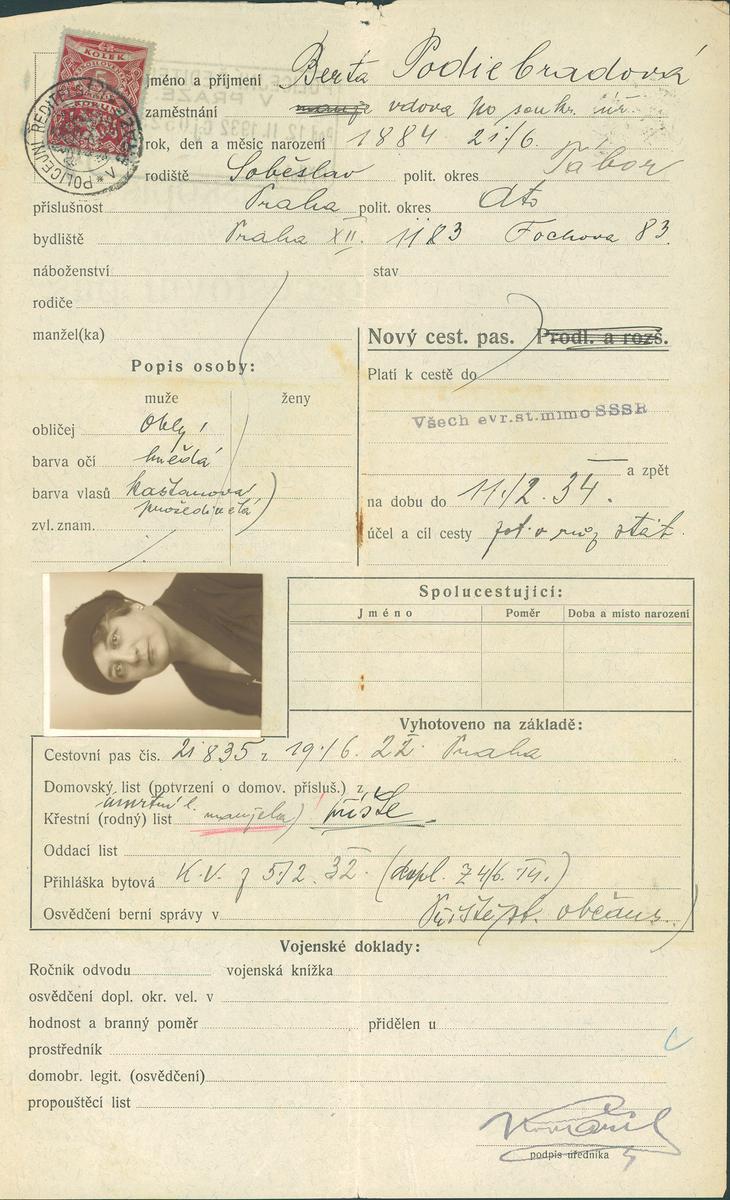 KOLEK
5
POLICEJNÍ ŘEDITELSTVÍ V PRAZE
jméno a příjmení Berta Podiebradová
zaměstnání vdova po soukr. úř.
rok, den a měsíc narození 1884 21/6.
rodiště Soběslav polit. okres Tábor
příslušnost Praha polit. okres dto
bydliště Praha XII. 1183 Fochova 83.
náboženství stav
rodiče
manžel(ka)
Nový cest. pas. Prodl. a rozš.
Popis osoby:
Platí k cestě do
muže ženy
Všech evr.st.mimo SSSR
obličej oblý
barva očí hnědá
a zpět
barva vlasů kaštanová
prošedivělá
na dobu do 11./2. 34.
zvl. znam.
účel a cíl cesty stát.
Spolucestující:
Jméno Poměr Doba a místo narození
Vyhotoveno na základě:
Cestovní pas čís. 21835 z 19/6. 22. Praha
Domovský list (potvrzení o domov. přísluš.) z
úmrtní l.
Křestní (rodný) list manžela) příště
Oddací list
Přihláška bytová K.V. z 5/2. 32. (dopl. z 4/6.
Osvědčení berní správy v Příště st. občans.)
Vojenské doklady:
Ročník odvodu vojenská knížka
osvědčení dopl. okr. vel. v
hodnost a branný poměr přidělen u
prostředník
domobr. legit. (osvědčení)
propouštěcí list
podpis úředníka